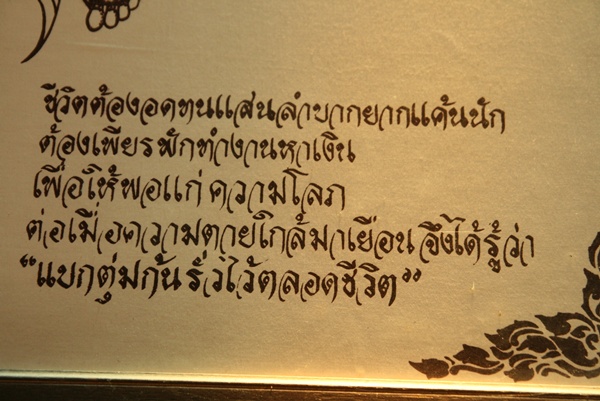 ชีวิตต้องอดทนแสนลำบากยากแค้นนัก
ต้องเพียรพักทำงานหาเงิน
เพื่อให้พอแก่ความโลภ
ต่อเมื่อความตายใกล้มาเยือน จึงได้รู้ว่า
“แบกตุ่มก้นรั่วไว้ตลอดชีวิต”